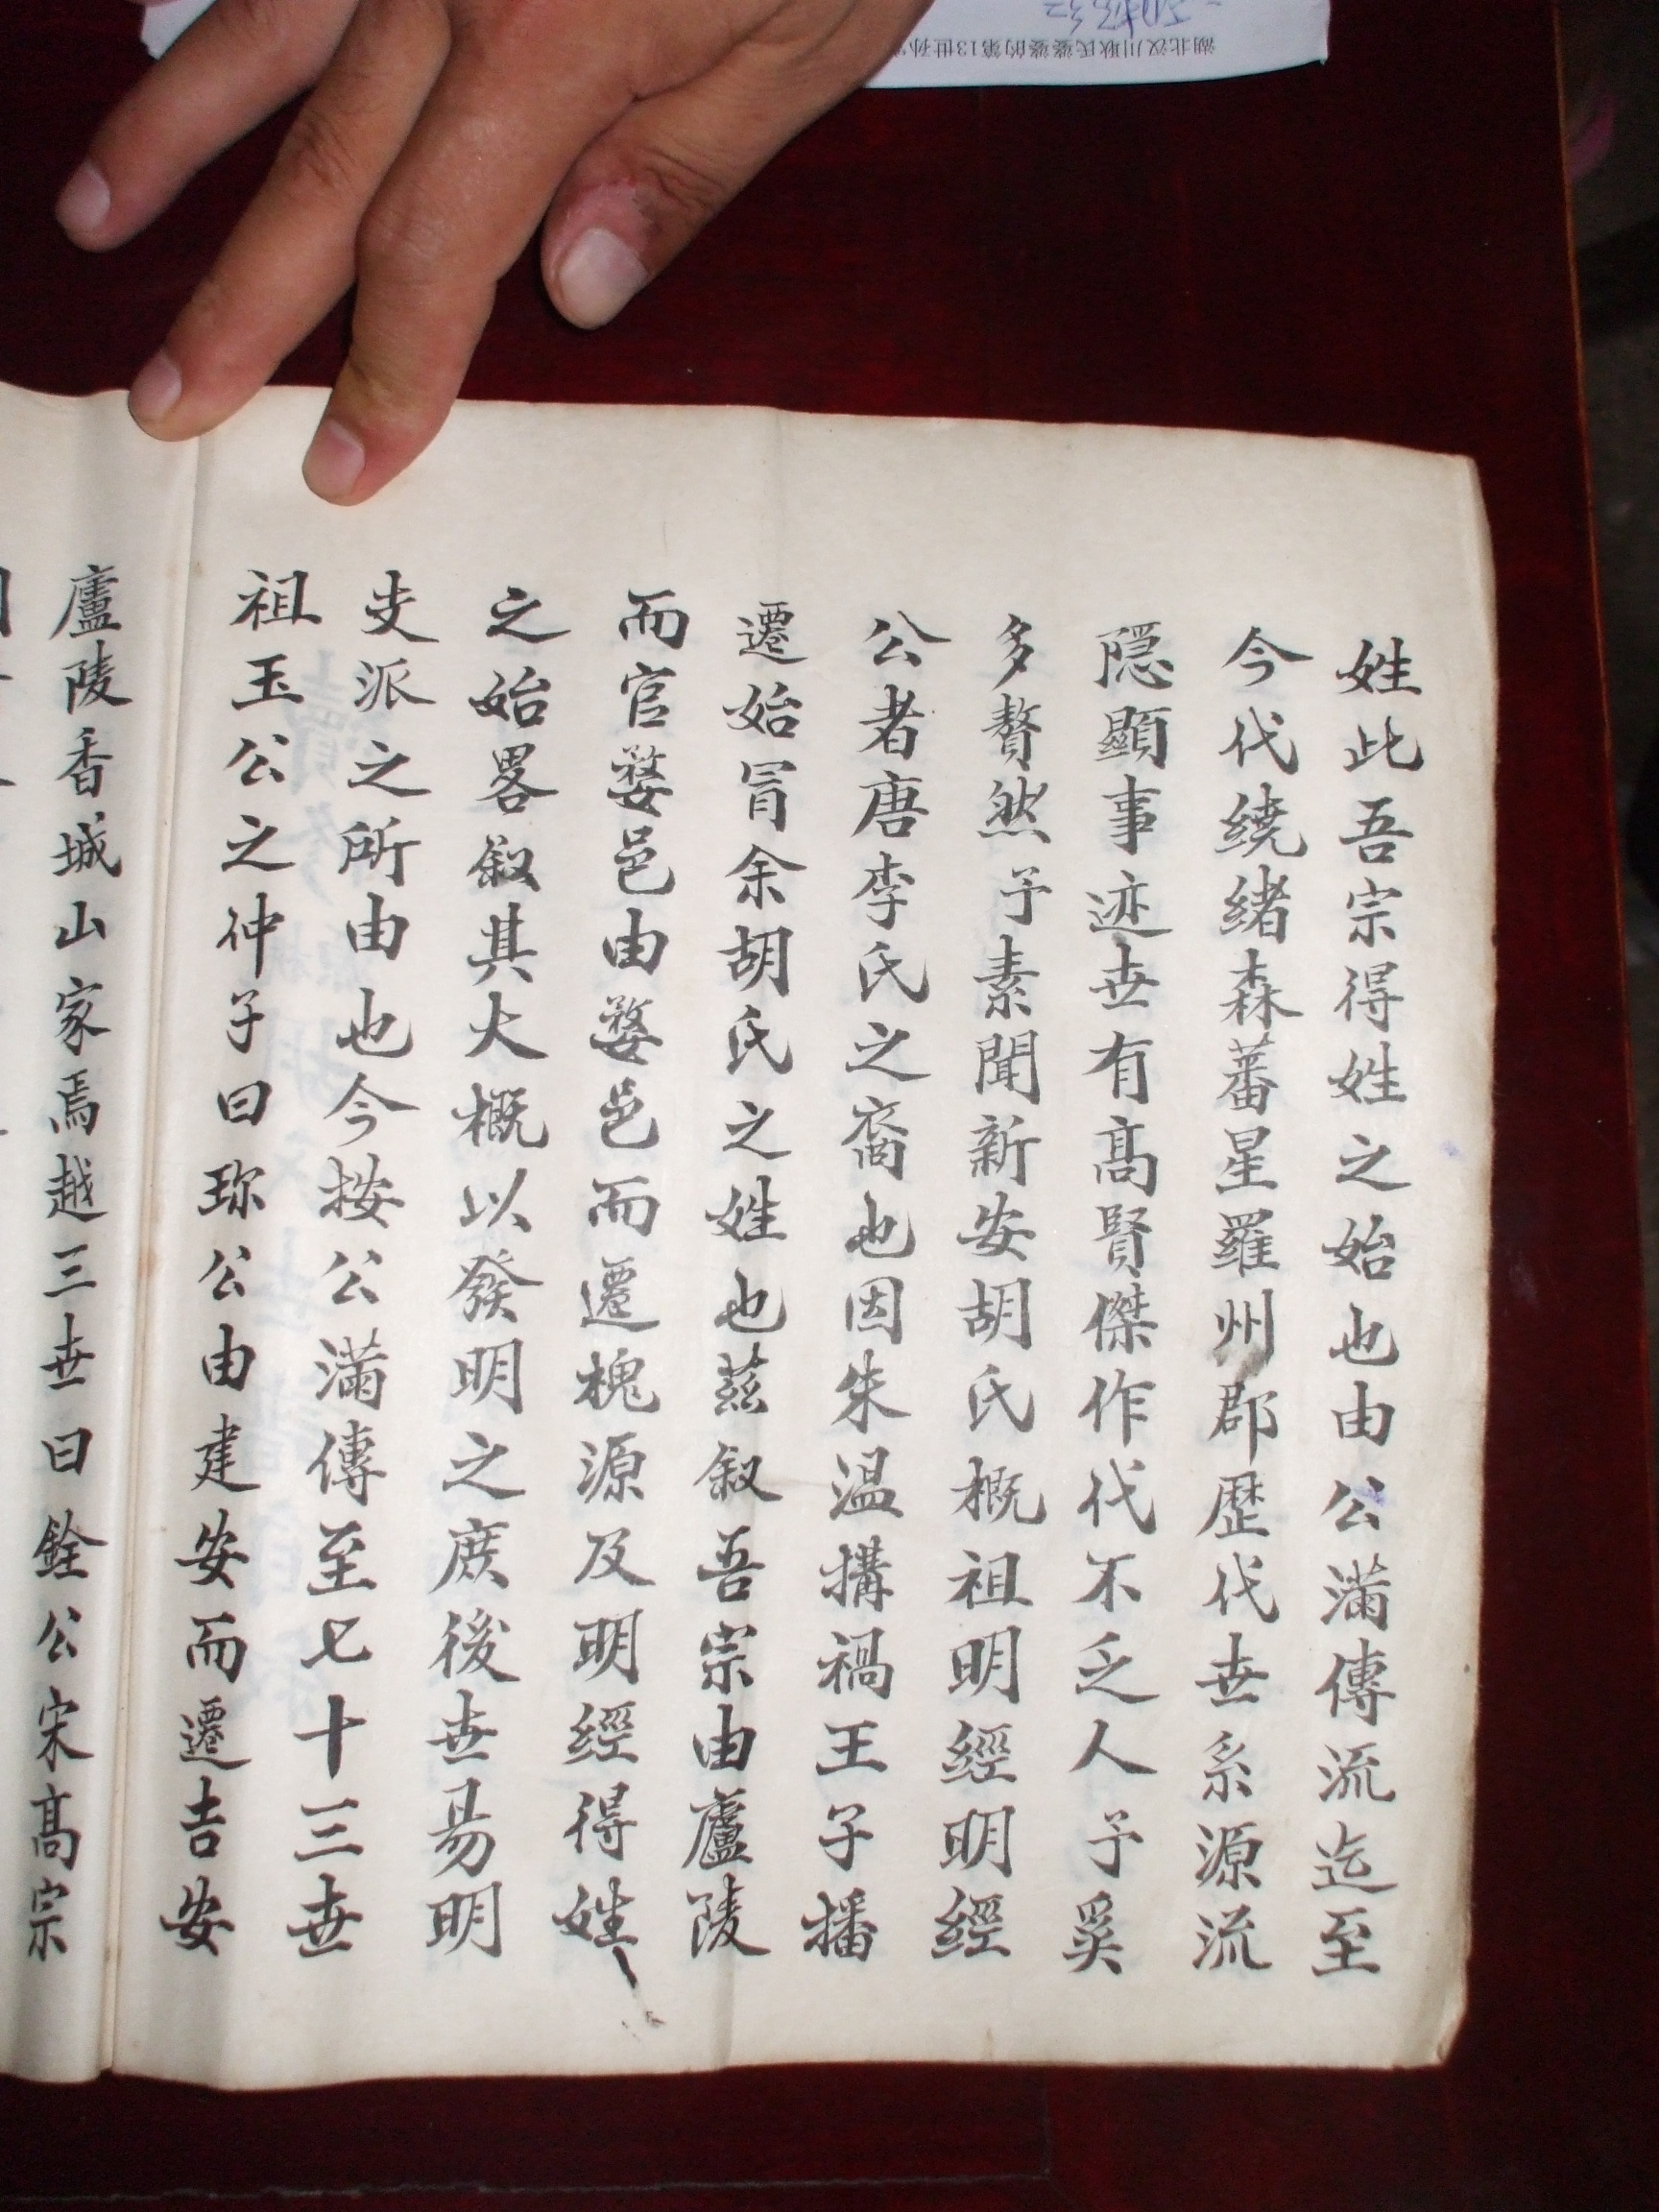 姓此吾宗得姓之始也由公滿傳流迄至
今代繞緒森蕃星羅州郡歷代世系源流
隱顯事迹世有髙賢傑作代不乏人予奚
多贅然予素聞新安胡氏概祖明經明經
公者唐李氏之裔也因朱温搆禍王子播
遷始冐余胡氏之姓也茲叙吾宗由廬陵
而官婺邑由婺邑而遷槐源及明經得姓
之始畧叙其大概以發明之庻後世易明
支派之所由也今按公滿傳至七十三世
祖玉公之仲子曰珎公由建安而遷吉安
廬陵香城山家焉越三世曰銓公宋髙宗
湖北汉川耿氏婆婆的第13世孙